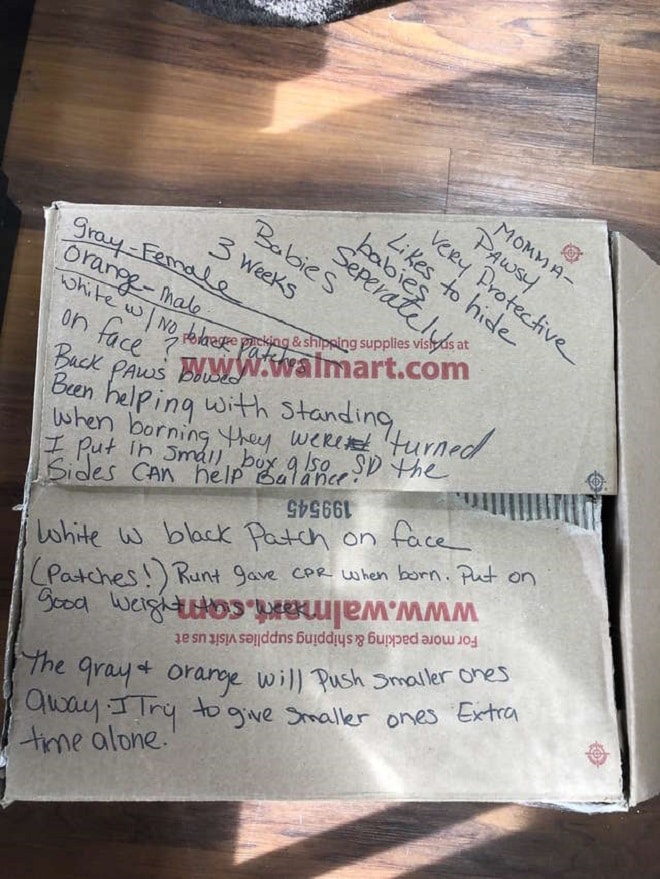 MOMMA-
PAWSY
Very Protective
Likes to hide
babies
Seperately
Babies
3 weeks
gray-Female
Orange-Male
White w/ No black Patches
on face ?
Back PAWS bowed
Been helping with Standing
when borning they were turned
I Put in small box also SO the
Sides CAN help Balance.
For more packing & shipping supplies visit us at
www.walmart.com
199545
White w black Patch on face
(Patches!) Runt gave CPR when born. Put on
good weight this week
www.walmart.com
For more packing & shipping supplies visit us at
The gray & orange will Push smaller ones
away. I Try to give smaller ones Extra
time alone.